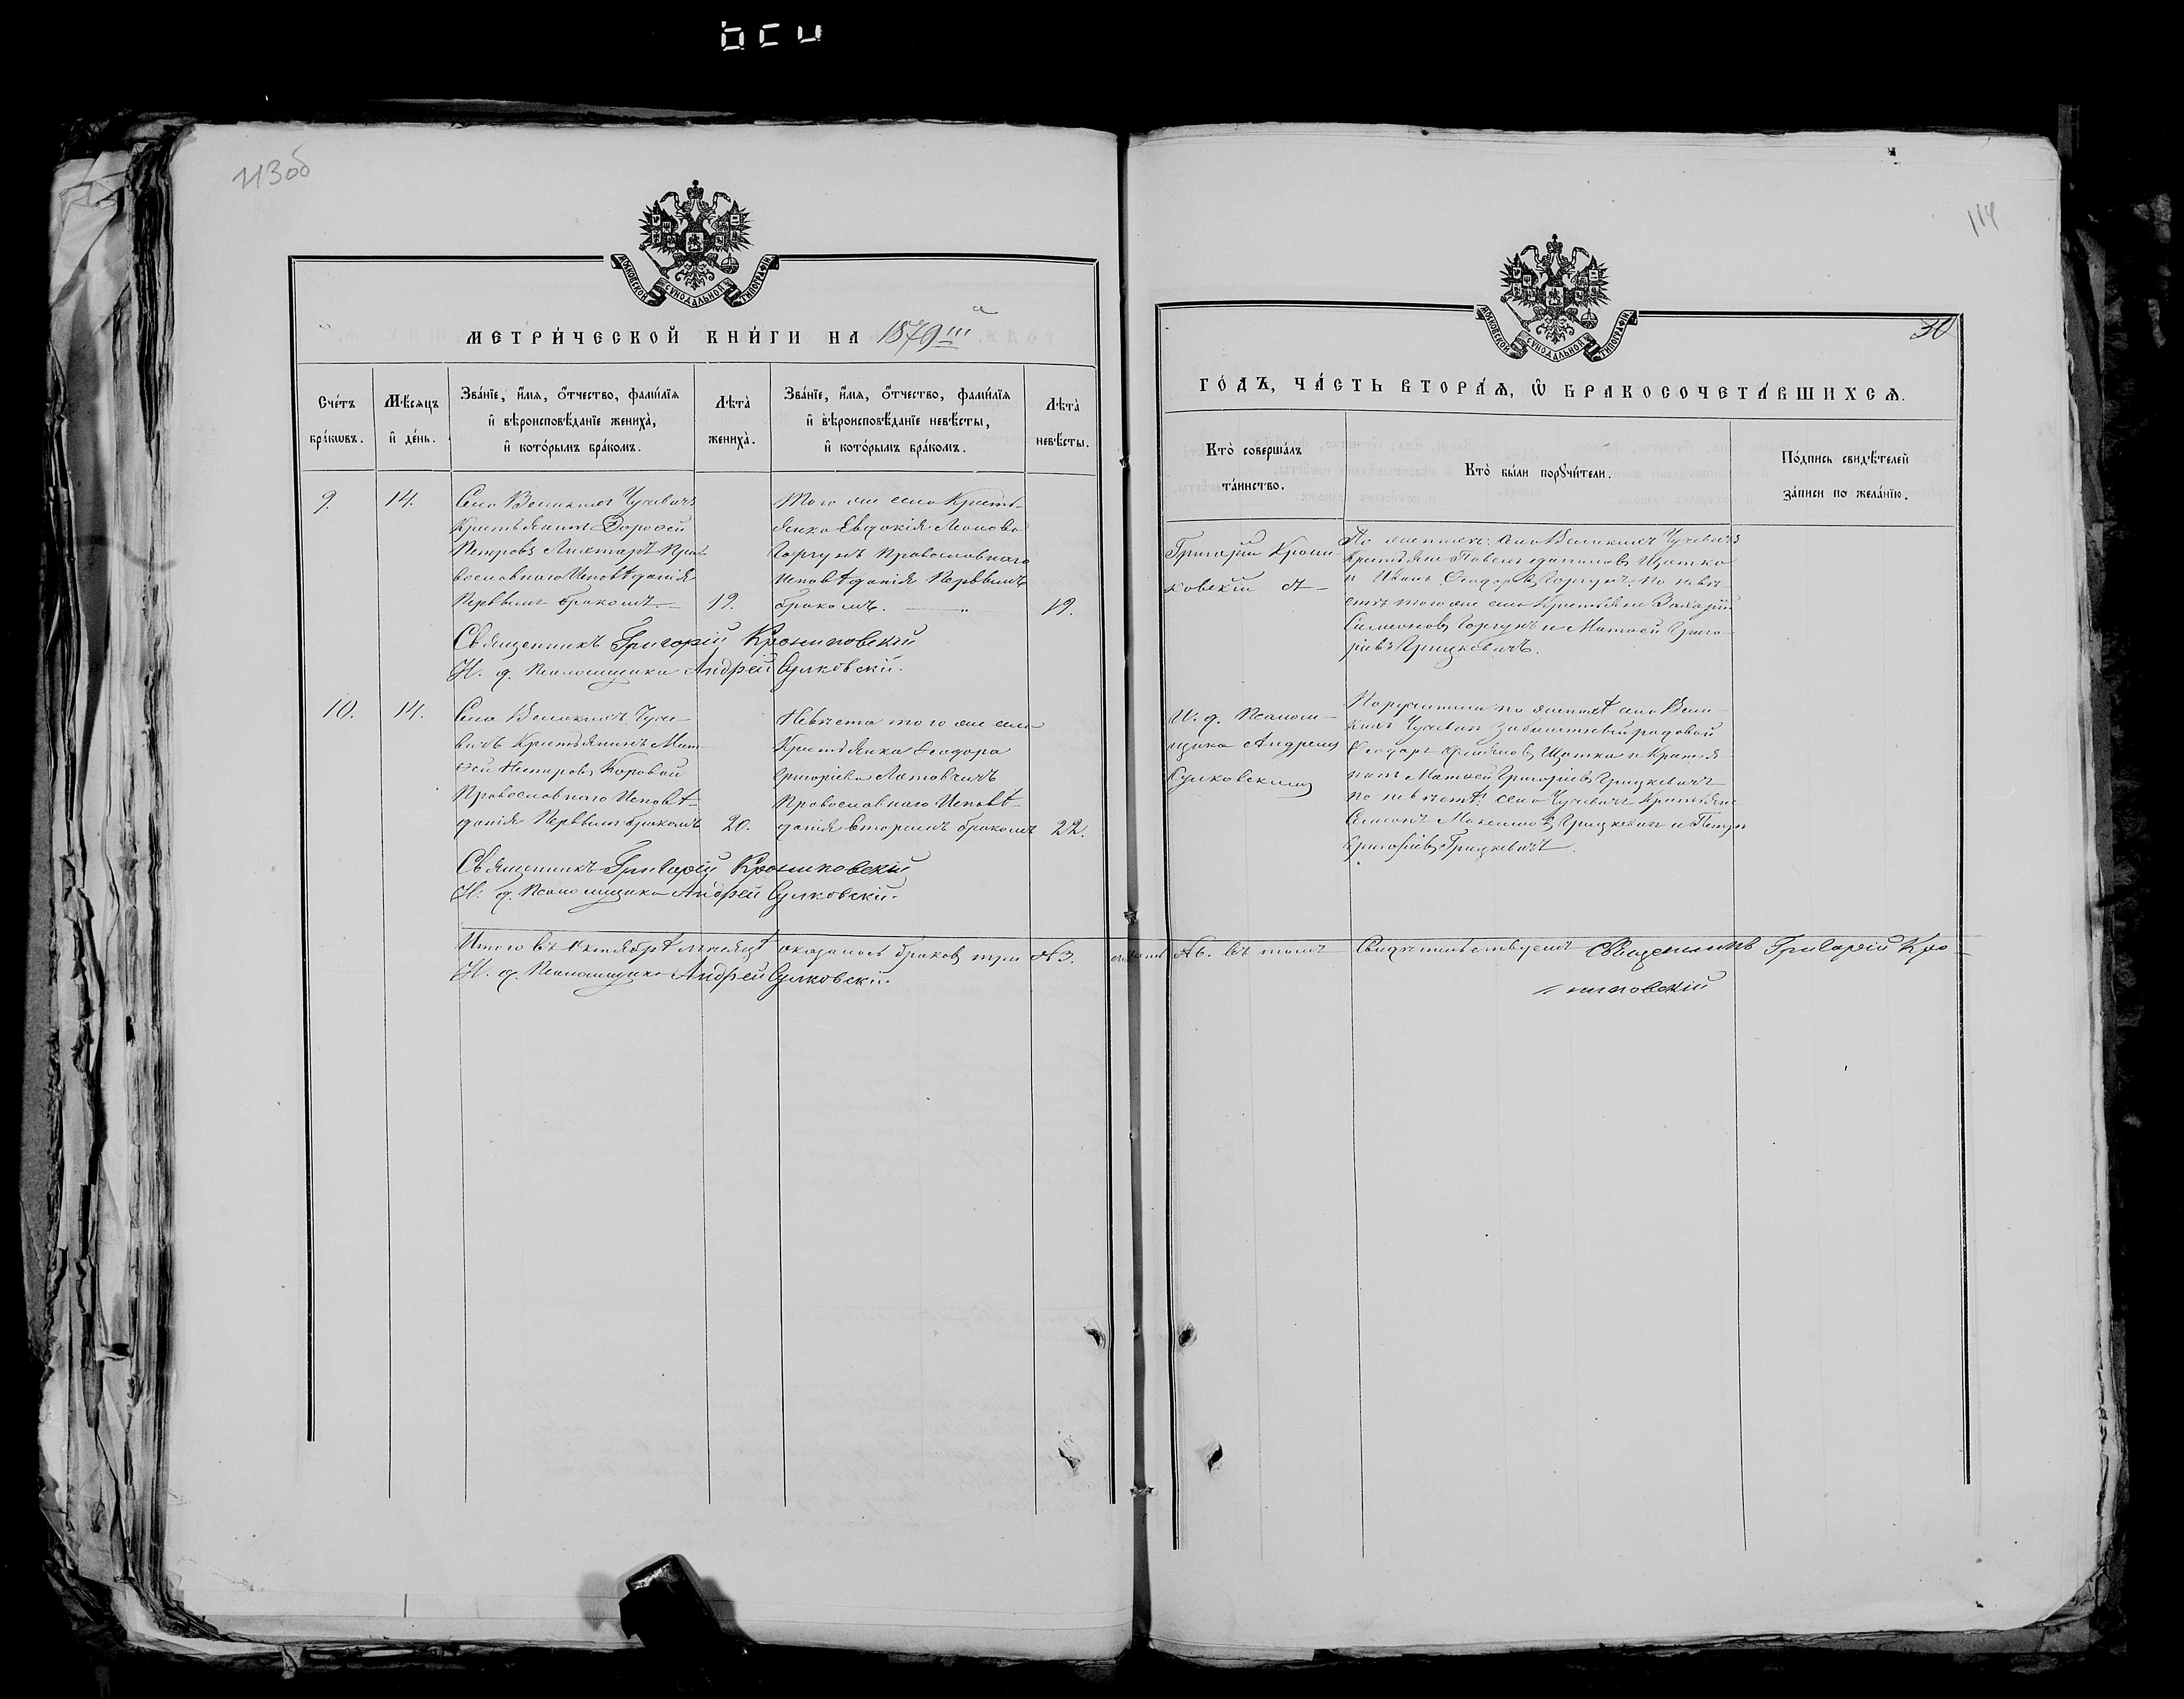 113об
МОСКОВСКОЙ СѴНОДАЛЬНОЙ ТИПОГРАФІИ
МЕТРИ́ЧЕСКОЙ КНИ́ГИ НА 1879
Сче́тъ бра́кѡвъ.
Мѣ́сяцъ и҆ де́нь.
Зва́нїе, и҆́мѧ, ѻ҆́тчество, фами́лїѧ и҆ вѣроисповѣ́данїе жениха̀, и҆ кото́рымъ бра́комъ.
Лѣта̀ жениха̀.
Зва́нїе, и҆́мѧ, ѻ҆́тчество, фами́лїѧ и҆ вѣроисповѣ́данїе невѣ́сты, и҆ кото́рымъ бра́комъ.
Лѣта̀ невѣ́сты.
9.
14.
Села Великихъ Чучевичъ
Крестьянинъ Дорофей
Петровъ Пра-
вославнаго Исповѣданія
Первымъ бракомъ
19.
Того же села Кресть-
янка Евдокія
Горгунъ Православнаго
Исповѣданія Первымъ
бракомъ.
19.
Священникъ Григорій
И. д. Псаломщика Андрей Сулковскій.
10.
14.
Села Великихъ Чуче-
вичъ Крестьянинъ Мат-
фей Нестеровъ Коровай
Православнаго Исповѣ-
данія Первымъ бракомъ
20.
Невѣста того же села
Крестьянка Ѳеодора
Григоріева
Православнаго Исповѣ-
данія вторымъ бракомъ
22.
Священникъ Григорій
И. д. Псаломщика Андрей Сулковскій.
Итого въ Октябрѣ мѣсяцѣ оказалось браковъ три № 3.
И. д. Псаломщика Андрей Сулковскій.
114
МОСКОВСКОЙ СѴНОДАЛЬНОЙ ТИПОГРАФІИ
ГО́ДЪ, ЧА́СТЬ ВТОРА́Ѧ, Ѽ БРАКОСОЧЕТА́ВШИХСѦ.
Кто̀ соверша́лъ та́инство.
Кто̀ бы́ли порꙋчи́тели.
По́дпись свидѣ́телей за́писи по жела́нїю.
Григорій
ковскій съ
По женихѣ: села Великихъ Чучевичъ
Крестьяне Павелъ Щотка
и Иванъ Ѳеодоровъ Горгунъ. По невѣ-
стѣ того же села Крестьяне Захарій
Симеоновъ Горгунъ и Матфей Григо-
ріевъ Грицкевичъ.
И. д. Псалом-
щика Андреемъ
Сулковскимъ
Поручители по женихѣ села Вели-
кихъ Чучевич рядовой
Ѳеодоръ Щотка и Крестья-
нинъ Матфей Григоріевъ Грицкевичъ
По невѣстѣ: села Чучевич Крестьяне
Семіонъ Максимовъ Грицкевич и Петръ
Григоріевъ Грицкевичъ.
въ томъ Свидѣтельствуемъ Священникъ Григорій Кро-